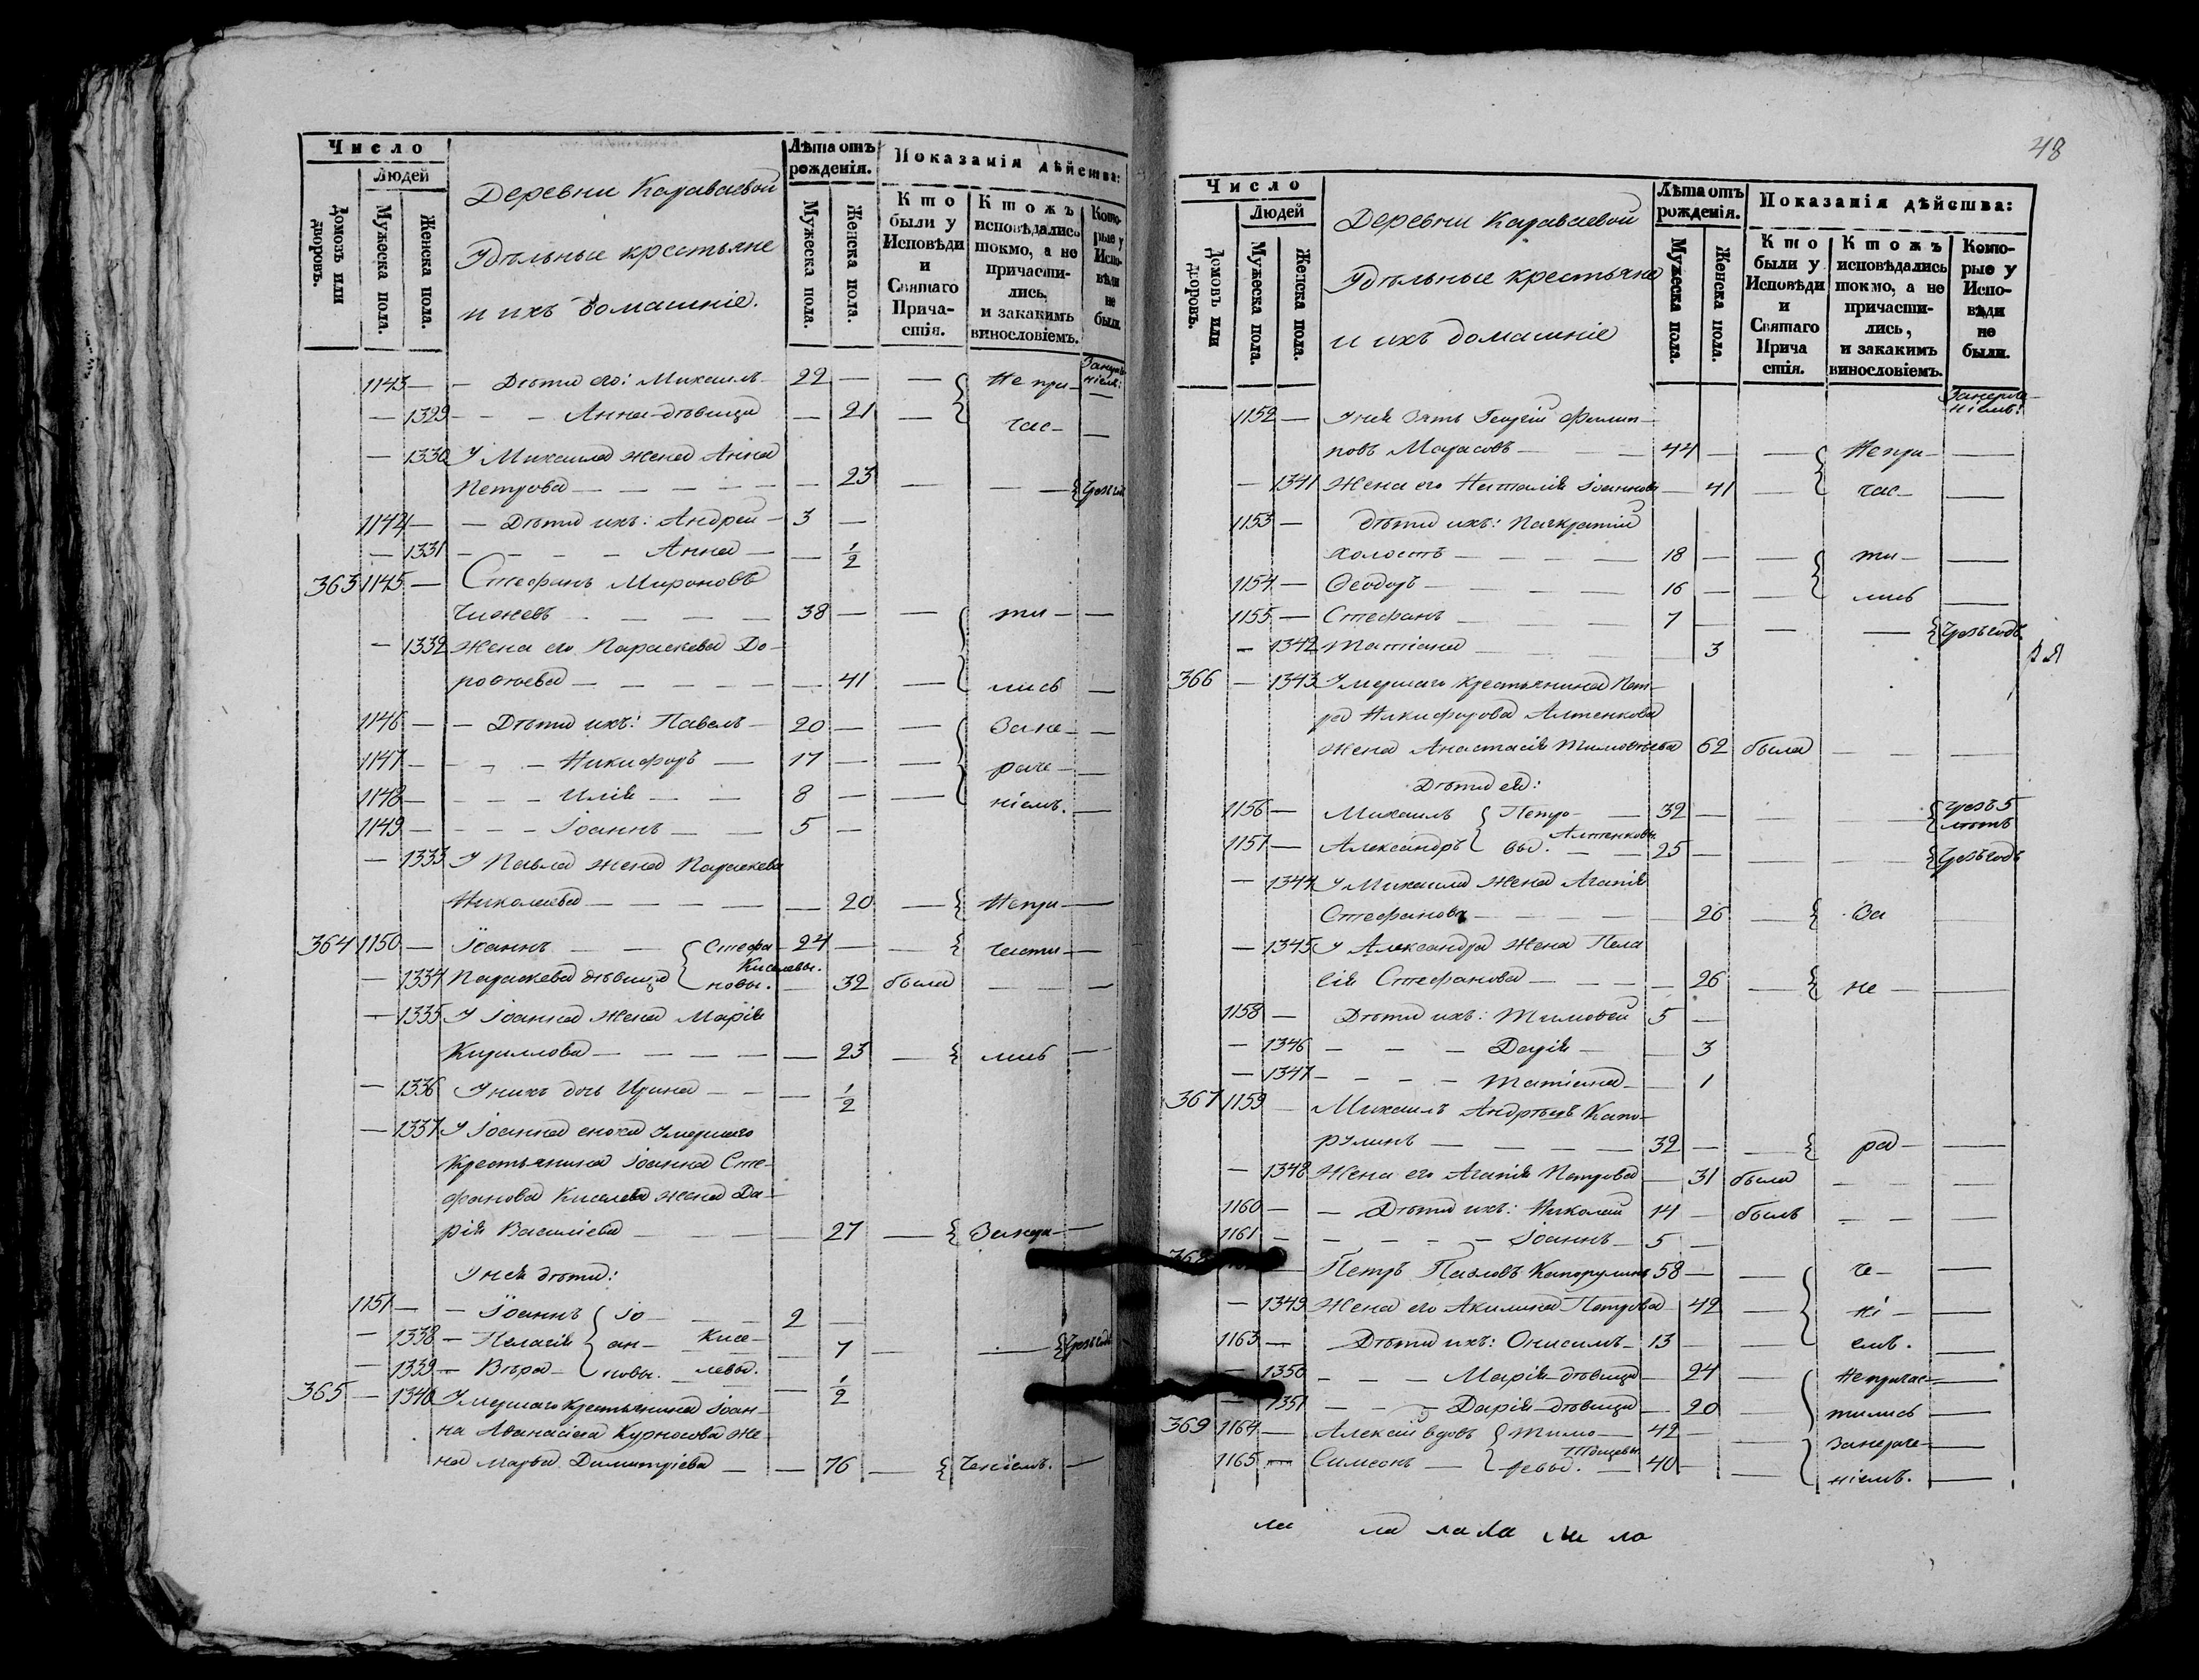 Число
Людей
Домовъ или дворовъ.
Мужеска пола.
Женска пола.
Деревни Караваевой
Удѣльные крестьяне
и ихъ домашніе.
Лѣта отъ рожденія.
Мужеска пола.
Женска пола.
Показанія дѣйства:
Кто были у Исповѣди и Святаго Причастія.
Ктожъ исповѣдались токмо, а не причастились, и закакимъ винословіемъ.
Которые у Исповѣди не были.
1143 — — Дѣти его: Михаилъ — 22 — — Непри —
— 1329 — — — Анна дѣвица — 21 — час —
— 1330 У Михаила жена Анна
Петрова — — — — — — 23 — —
1144 — — Дѣти ихъ: Андрей — 3 —
— 1331 — — — — Анна — — 1/2
363 1145 — Стефанъ Мироновъ
Чижевъ — — — — 38 — — ти — —
— 1332 Жена его Параскева До-
роѳеева — — — — — 41 — лись —
1146 — — Дѣти ихъ: Павелъ — 20 — — Зане — —
1147 — — — — Никифоръ — 17 — — раче — —
1148 — — — — Илія — — 8 — — ніемъ. —
1149 — — — — Іоаннъ — — 5 —
— 1333 У Павла жена Параскева
Николаева — — — — — 20 — Непри —
364 1150 — Іоаннъ — — Стефа- 24 — — части —
— 1334 Параскева дѣвица новы. Киселевы. — 32 была — — —
— 1335 У Іоанна жена Марія
Кириллова — — — — — 23 — лись —
— 1336 У нихъ дочь Ирина — — — 1/2
— 1337 У Іоанна сноха умершаго
Крестьянина Іоанна Сте-
фанова Киселева жена Да-
рія Василіева — — — — 27 —
У нея дѣти:
1151 — — Іоаннъ Іо — 2 —
— 1338 — Пелагія ан — Кисе — 7 — —
— 1339 — Вѣра — новы. левы. — 1/2
365 — 1340 Умершаго крестьянина Іоан-
на Аѳанасіева Курносова же-
на Марѳа Димитріева — — 76 — ченіемъ. —
48
Число
Людей
Домовъ или дворовъ.
Мужеска пола.
Женска пола.
Деревни Караваевой
Удѣльные крестьяне
и ихъ домашніе
Лѣта отъ рожденія.
Мужеска пола.
Женска пола.
Показанія дѣйства:
Кто были у Исповѣди и Святаго Причастія.
Ктожъ исповѣдались токмо, а не причастились, и закакимъ винословіемъ.
Которые у Исповѣди не были.
1152 — У нея зять Георгій Филип-
повъ — — — 44 — — Непри — —
— 1341 Жена его Наталія Іоаннова — 41 — час — —
1153 — Дѣти ихъ: Панкратій
холостъ — — — — 18 — — ти — —
1154 — Ѳеодоръ — — — — 16 — — лись —
1155 — Стефанъ — — — — 7 — — — Чрезъ годъ
— 1342 Татіана — — — — 3
366 — 1343 Умершаго крестьянина Пет-
ра Никифорова Алтенкова
жена Анастасія Тимоѳеева 62 была — —
Дѣти ея:
1156 — Михаилъ Петро — 32 — — — Чрезъ 5 лѣтъ
1157 — Александръ вы. Алтенковы — 25 — — — Чрезъ годъ
— 1344 У Михаила жена Агапія
Стефанова — — — — — 26 — За —
— 1345 У Александра жена Пела
гія Стефанова — — — — 26 — не — —
1158 — Дѣти ихъ: Тимоѳей 5 —
— 1346 — — — Дарія — — 3
— 1347 — — — — Татіана — — 1
367 1159 — Михаилъ Андреевъ Капо-
рулинъ — — — — 32 — — ра — —
— 1348 Жена его Агапія Петрова — 31 была — — —
1160 — — Дѣти ихъ: Николай 14 — былъ — — —
1161 — — — — — — Іоаннъ — 5 —
Петръ Павловъ Капорулинъ 58 — — че — —
— 1349 Жена его Акилина Петрова — 42 — ні — —
1163 — Дѣти ихъ: Онисимъ — 13 — — емъ. —
— 1350 — — — Марія дѣвица — 24 — Непричас —
— 1351 — — — Дарія дѣвица — 20 — тились —
369 1164 — Алексій вдовъ Тимо — 42 — — занераче —
1165 — Симеонъ — 40 — — ніемъ. —
ли ла ла ла ли ла